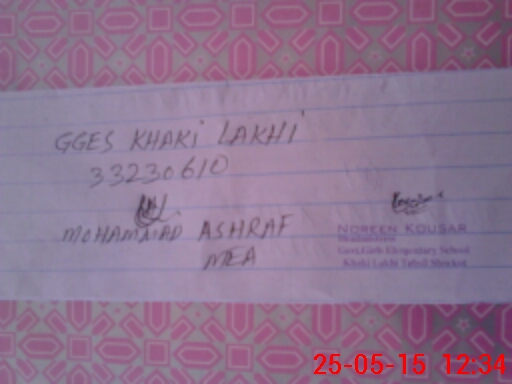 GGES KHAKi LAKHI
33230610
MOHAMMAD ASHRAF
MEA
NOREEN KOUSAR
Headmistress
Govt.Girls Elementary School
Khaki Lakhi Tehsil Shorkot
25-05-15 12:34